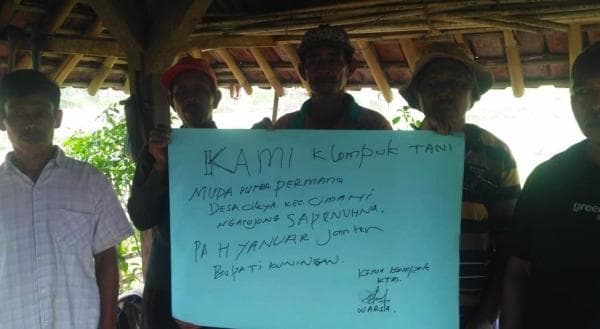 KAMI Klompok TANI
MUDA PUTRA PERMANA
DESA CILEYA KEC CIMAHI
NGAROJONG SAPENUHNA.
PA H YANUAR
BUPATI KUNINGAN.
KTM.
WARSA
green